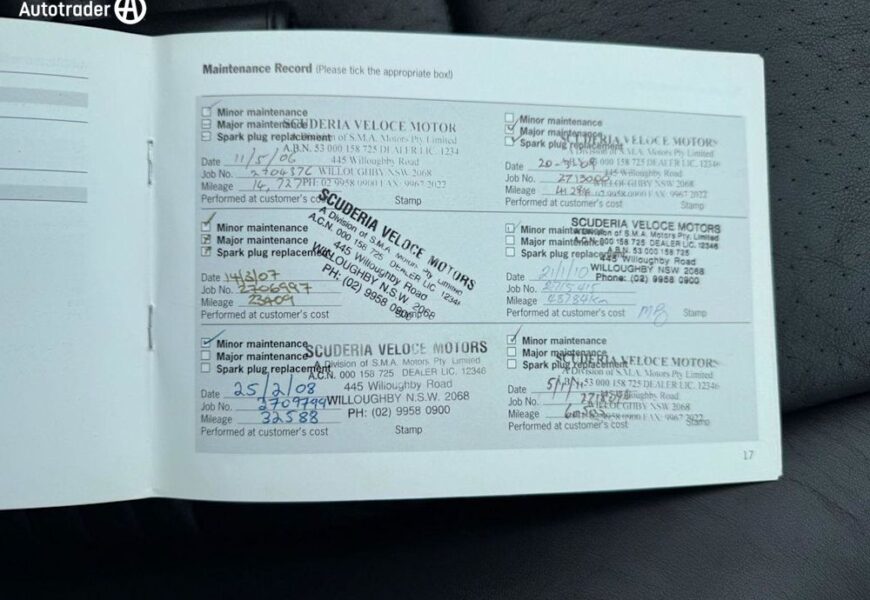 Autotrader
Maintenance Record (Please tick the appropriate box!)
Minor maintenance
Major maintenance
Spark plug replacement
SCUDERIA VELOCE MOTOR
A Division of S.M.A. Motors Pty Limited
A.B.N. 53 000 158 725 DEALER LIC. 1234
445 Willoughby Road
WILLOUGHBY NSW 2068
PH: 02 9958 0900 FAX: 9967 2022
Date 11/5/06
Job No. 2704376
Mileage 14,727
Performed at customer's cost
Stamp
Minor maintenance
Major maintenance
Spark plug replacement
SCUDERIA VELOCE MOTORS
A Division of S.M.A. Motors Pty Limited
A.C.N. 000 158 725 DEALER LIC. 12346
445 Willoughby Road
WILLOUGHBY N.S.W. 2068
PH: (02) 9958 0900
Date 14/3/07
Job No. 2706997
Mileage 23409
Performed at customer's cost
Stamp
Minor maintenance
Major maintenance
Spark plug replacement
SCUDERIA VELOCE MOTORS
A Division of S.M.A. Motors Pty Limited
A.C.N. 000 158 725 DEALER LIC. 12346
445 Willoughby Road
WILLOUGHBY N.S.W. 2068
PH: (02) 9958 0900
Date 25/2/08
Job No. 2709799
Mileage 32588
Performed at customer's cost
Stamp
Minor maintenance
Major maintenance
Spark plug replacement
SCUDERIA VELOCE MOTORS
A Division of S.M.A. Motors Pty Limited
000 158 725 DEALER LIC. 12346
445 Willoughby Road
WILLOUGHBY NSW 2068
02 9958 0900 FAX: 9967 2022
Date
Job No.
Mileage
Performed at customer's cost
Stamp
Minor maintenance
Major maintenance
Spark plug replacement
SCUDERIA VELOCE MOTORS
A Division of S.M.A. Motors Pty. Limited
A.C.N. 000 158 725 DEALER LIC. 12346
A.B.N. 53 000 158 725
445 Willoughby Road
WILLOUGHBY NSW 2068
Phone: (02) 9958 0900
Date 21/1/10
Job No. 2715415
Mileage 48784km
Performed at customer's cost
Stamp
Minor maintenance
Major maintenance
Spark plug replacement
SCUDERIA VELOCE MOTORS
A Division of S.M.A. Motors Pty Limited
A.B.N. 53 000 158 725 DEALER LIC. 12346
Willoughby Road
WILLOUGHBY NSW 2068
9958 0900 FAX: 9967 2022
Date
Job No.
Mileage
Performed at customer's cost
Stamp
17